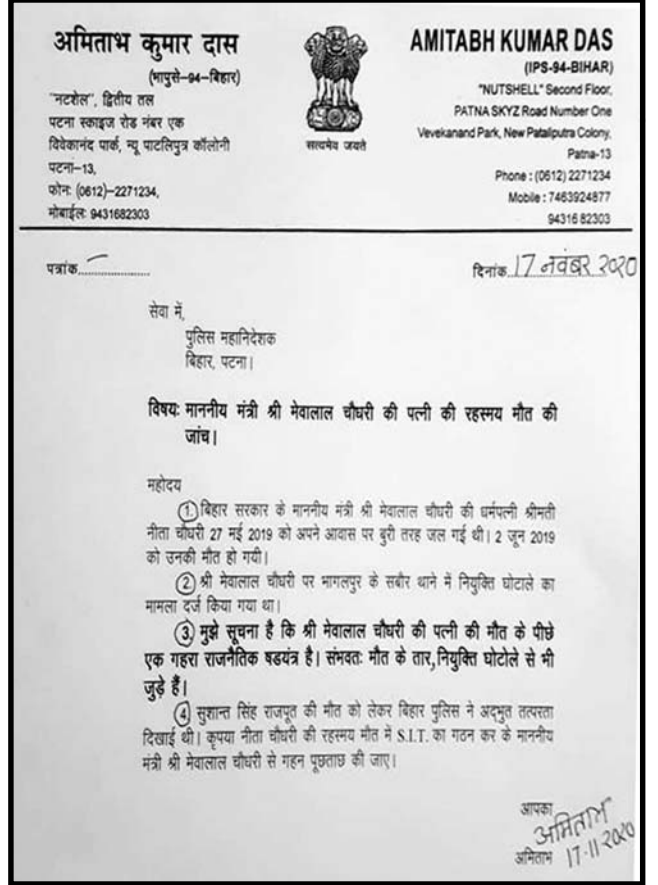 अमिताभ कुमार दास
(भापुसे–94–बिहार)
"नटशेल", द्वितीय तल
पटना स्काइज रोड नंबर एक
विवेकानंद पार्क, न्यू पाटलिपुत्र कॉलोनी
पटना–13,
फोनः (0612)–2271234,
मोबाईलः 9431682303
सत्यमेव जयते
AMITABH KUMAR DAS
(IPS-94-BIHAR)
"NUTSHELL" Second Floor,
PATNA SKYZ Road Number One
Vevekanand Park, New Pataliputra Colony,
Patna-13
Phone : (0612) 2271234
Mobile : 7463924877
94316 82303
पत्रांक....................
दिनांक 17 नवंबर 2020
सेवा में,
पुलिस महानिदेशक
बिहार, पटना।
विषयः माननीय मंत्री श्री मेवालाल चौधरी की पत्नी की रहस्मय मौत की
जांच।
महोदय
1. बिहार सरकार के माननीय मंत्री श्री मेवालाल चौधरी की धर्मपत्नी श्रीमती
नीता चौधरी 27 मई 2019 को अपने आवास पर बुरी तरह जल गई थी। 2 जून 2019
को उनकी मौत हो गयी।
2 श्री मेवालाल चौधरी पर भागलपुर के सबौर थाने में नियुक्ति घोटाले का
मामला दर्ज किया गया था।
3. मुझे सूचना है कि श्री मेवालाल चौधरी की पत्नी की मौत के पीछे
एक गहरा राजनैतिक षडयंत्र है। संभवतः मौत के तार,नियुक्ति घोटोले से भी
जुड़े हैं।
4 सुशान्त सिंह राजपूत की मौत को लेकर बिहार पुलिस ने अद्भुत तत्परता
दिखाई थी। कृपया नीता चौधरी की रहस्मय मौत में S.I.T. का गठन कर के माननीय
मंत्री श्री मेवालाल चौधरी से गहन पूछताछ की जाए।
आपका
अमिताभ
अमिताभ 17-11-2020